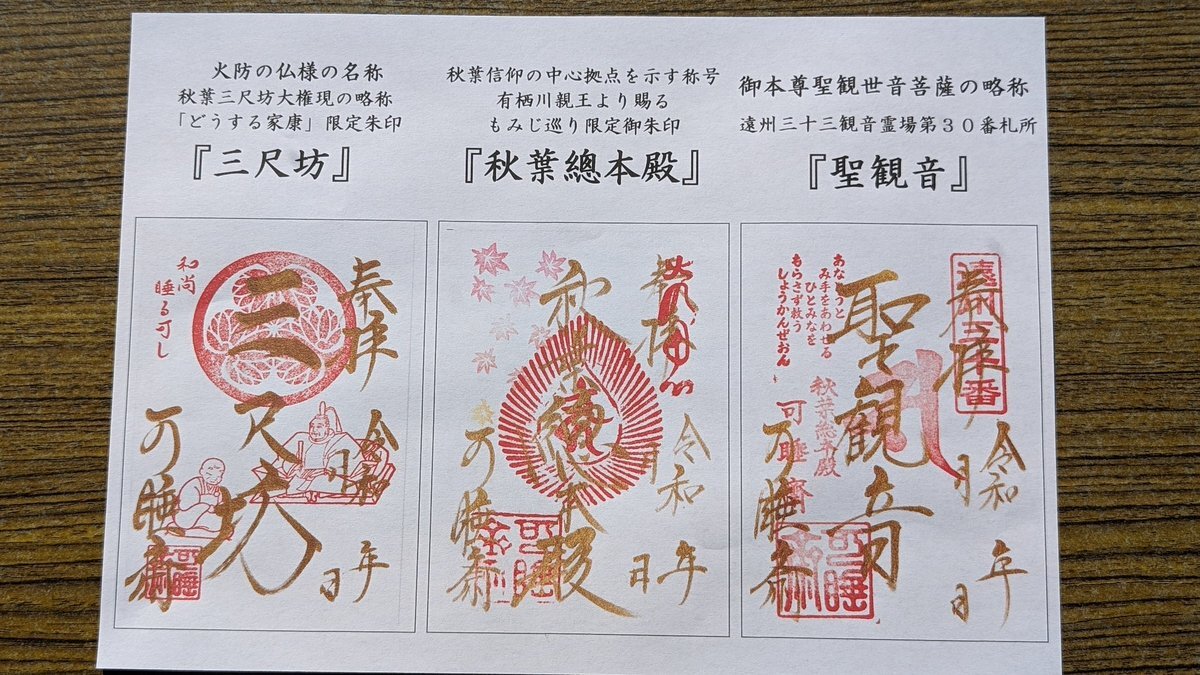 火防の仏様の名称
秋葉三尺坊大権現の略称
「どうする家康」限定朱印
『三尺坊』
秋葉信仰の中心拠点を示す称号
有栖川親王より賜る
もみじ巡り限定御朱印
『秋葉總本殿』
御本尊聖観世音菩薩の略称
遠州三十三観音霊場第30番札所
『聖観音』
奉拝
三尺坊
和尚
睡る可し
令和
年
月
日
可睡斎
奉拝
秋葉總本殿
令和
年
月
日
可睡斎
遠州三十番
奉拝
聖観音
あなとうと
み手をあわせる
ひとみなを
もらさず救う
しょうかんぜおん
秋葉総本殿
可睡斎
令和
年
月
日
可睡斎